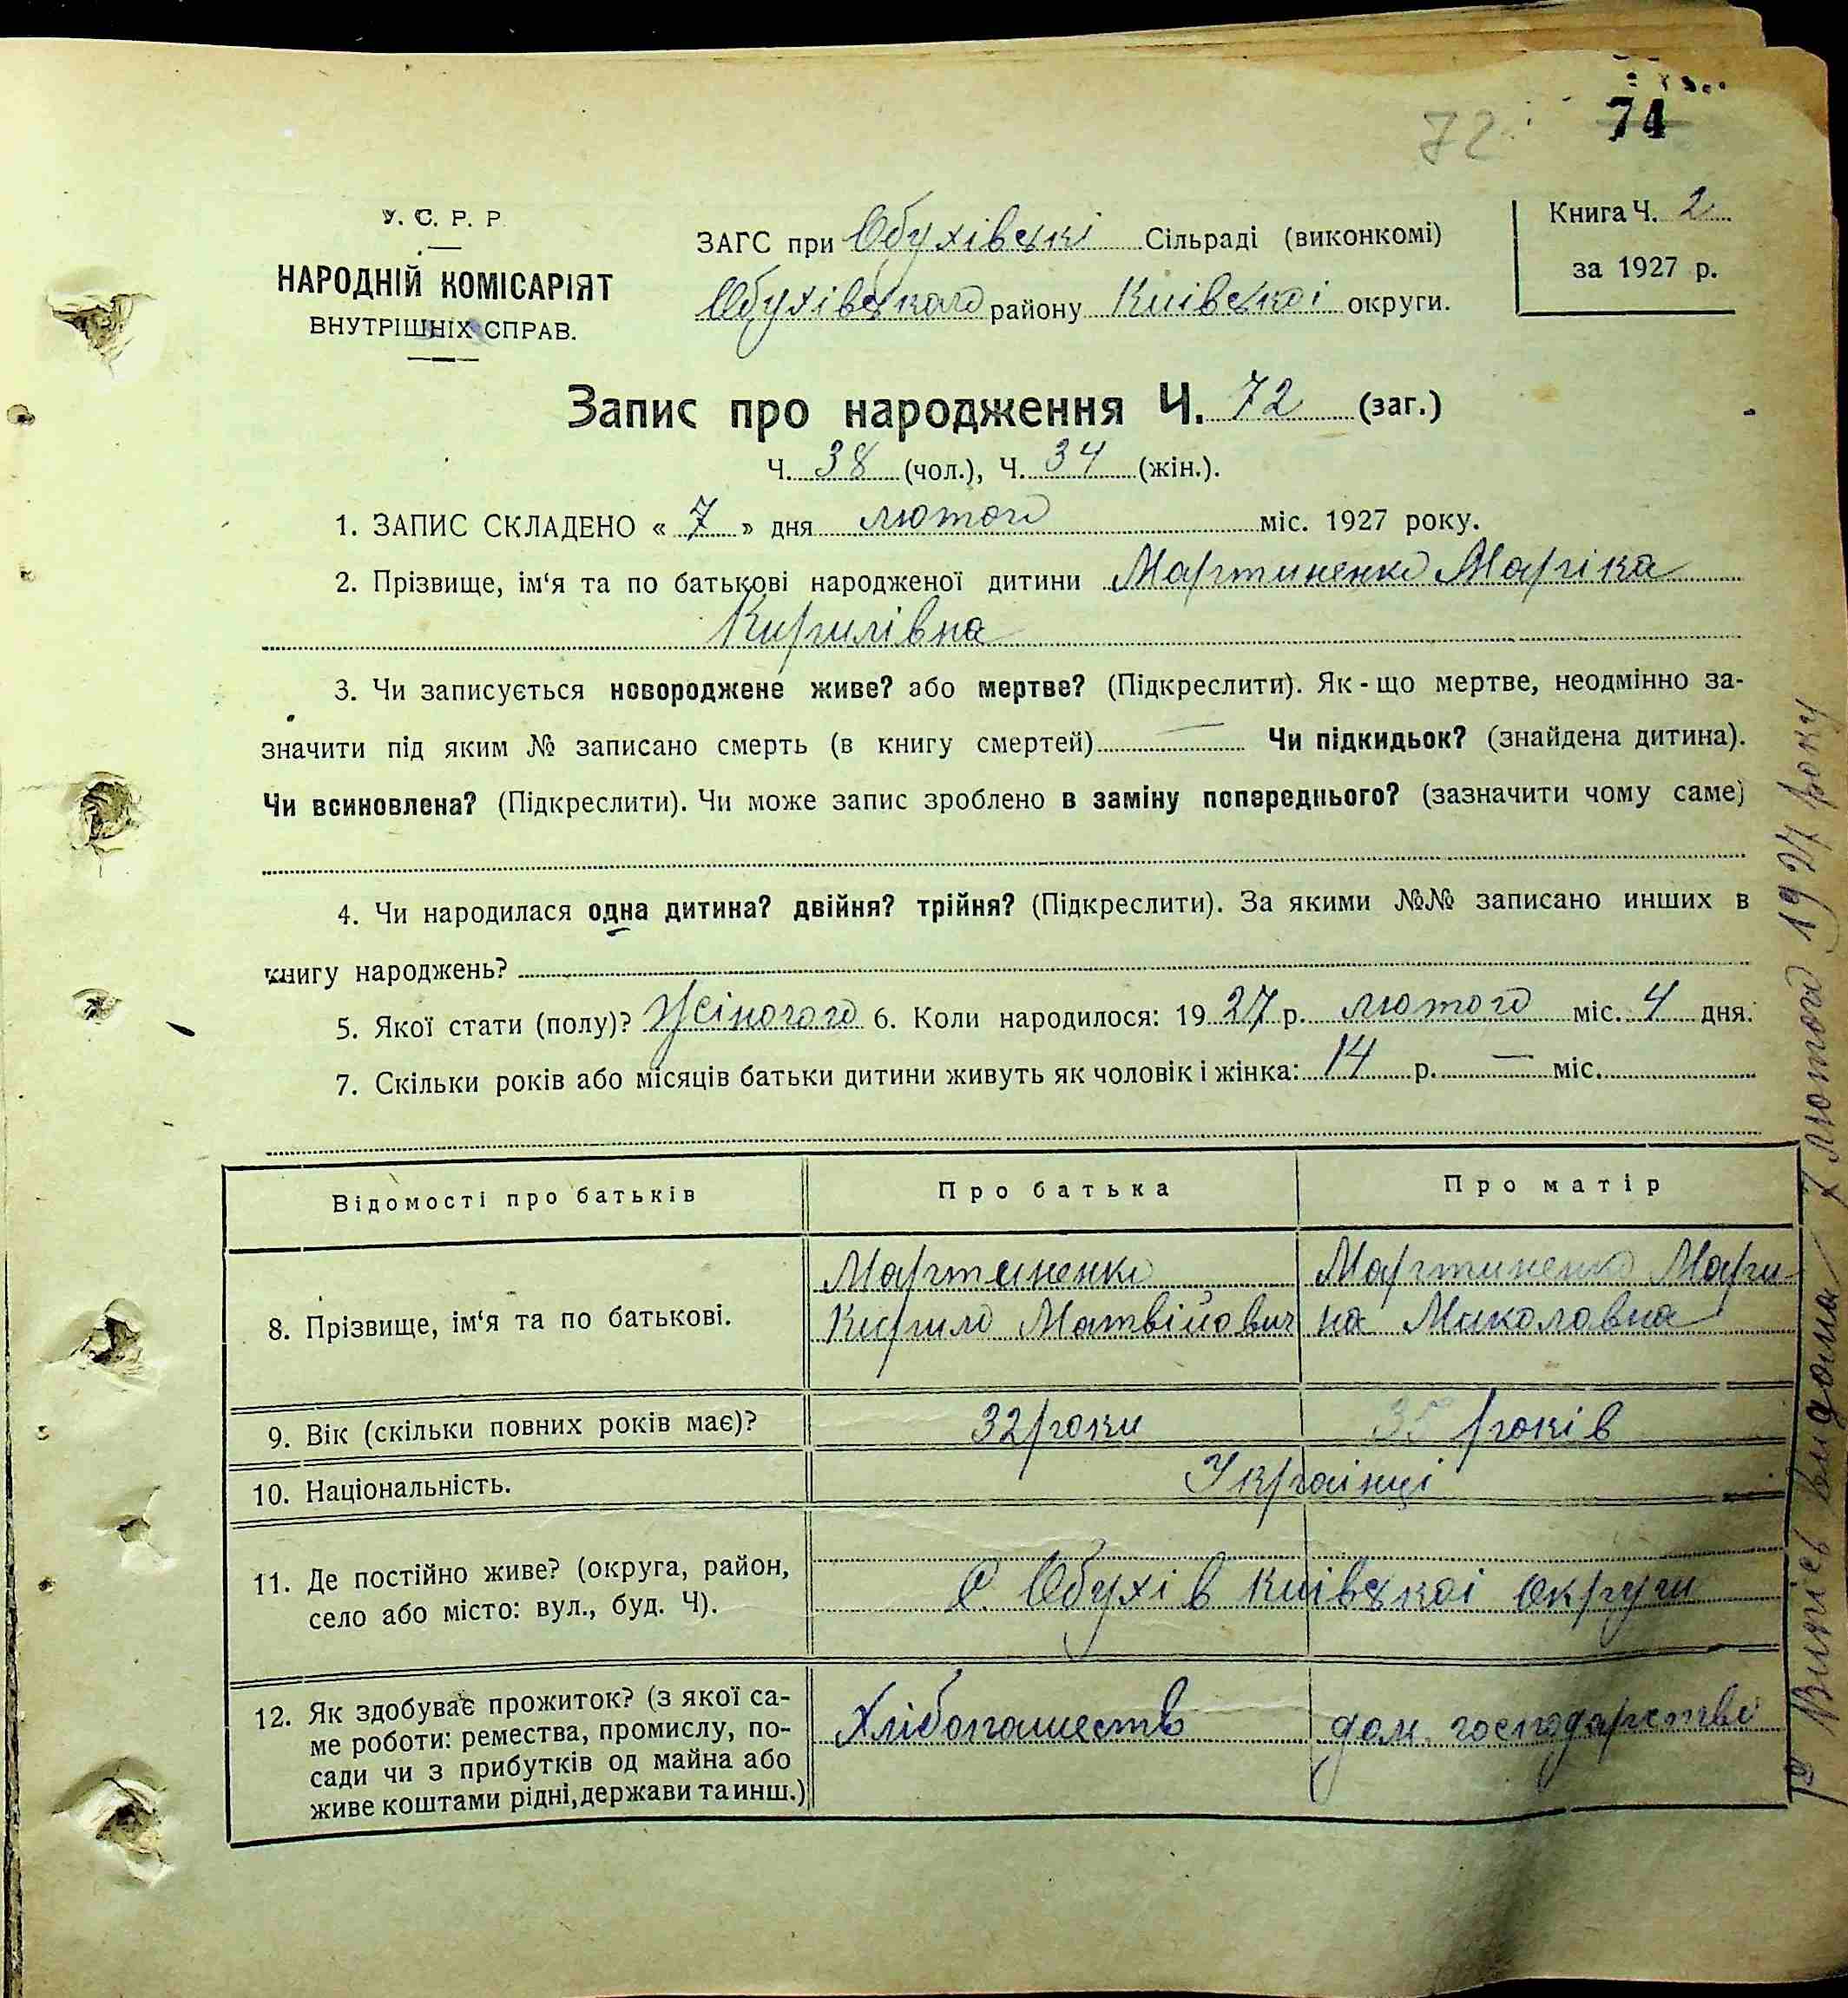 74
72
У. С. Р. Р.
НАРОДНІЙ КОМІСАРІЯТ
ВНУТРІШНІХ СПРАВ.
ЗАГС при Обухівські Сільраді (виконкомі)
Обухівского району Киівскоі округи.
Книга Ч. 2
за 1927 р.
Запис про народження Ч. 72 (заг.)
Ч. 38 (чол.), Ч. 34 (жін.).
1. ЗАПИС СКЛАДЕНО « 7 » дня лютого міс. 1927 року.
2. Прізвище, ім‘я та по батькові народженої дитини Мартиненко Маріка
Кирилівна
3. Чи записується новороджене живе? або мертве? (Підкреслити). Як-що мертве, неодмінно за-
значити під яким № записано смерть (в книгу смертей) — Чи підкидьок? (знайдена дитина).
Чи всиновлена? (Підкреслити). Чи може запис зроблено в заміну попереднього? (зазначити чому саме)
4. Чи народилася одна дитина? двійня? трійня? (Підкреслити). За якими №№ записано инших в
книгу народжень?
5. Якої стати (полу)? Жіночого 6. Коли народилося: 1927 р. лютого міс. 4 дня.
7. Скільки років або місяців батьки дитини живуть як чоловік і жінка: 14 р. — міс.
Відомості про батьків Про батька Про матір
8. Прізвище, ім‘я та по батькові.
Мартиненко
Кирило Матвійович
Мартиненко Мари
на Миколовна
9. Вік (скільки повних років має)? 32 роки 35 років
10. Національність. Украінці
11. Де постійно живе? (округа, район,
село або місто: вул., буд. Ч).
С. Обухів Киівскоі округи
12. Як здобуває прожиток? (з якої са-
ме роботи: ремества, промислу, по-
сади чи з прибутків од майна або
живе коштами рідні, держави та инш.)
Хлібопашество
дом. господарство
Випісь видана 7 лютого 1927 року